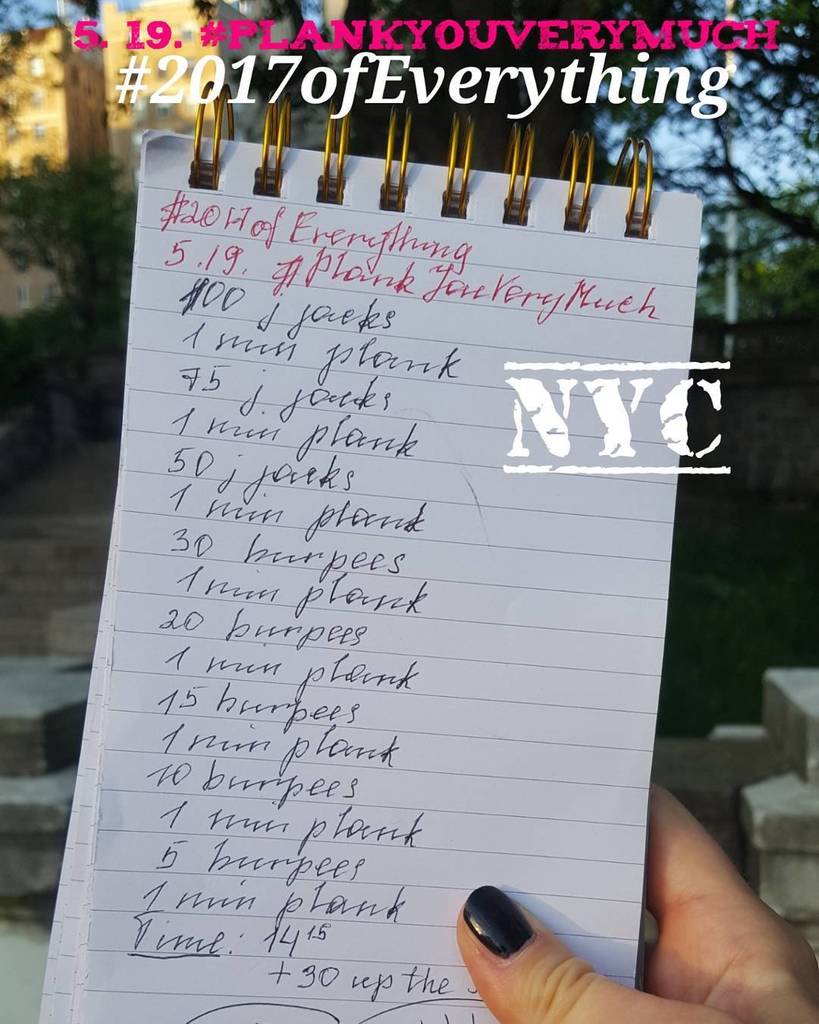 5. 19. #PLANKYOUVERYMUCH
#2017ofEverything
#2017ofEverything
5.19. #PlankYouVeryMuch
100 j jacks
1 min plank
75 j. jacks
1 min plank
NYC
50 j jacks
1 min plank
30 burpees
1 min plank
20 burpees
1 min plank
15 burpees
1 min plank
10 burpees
1 min plank
5 burpees
1 min plank
Time: 14 15
+30 up the